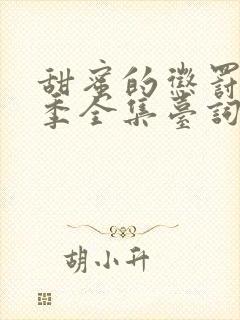 甜蜜的懲罰
季全集臺詞
胡小升